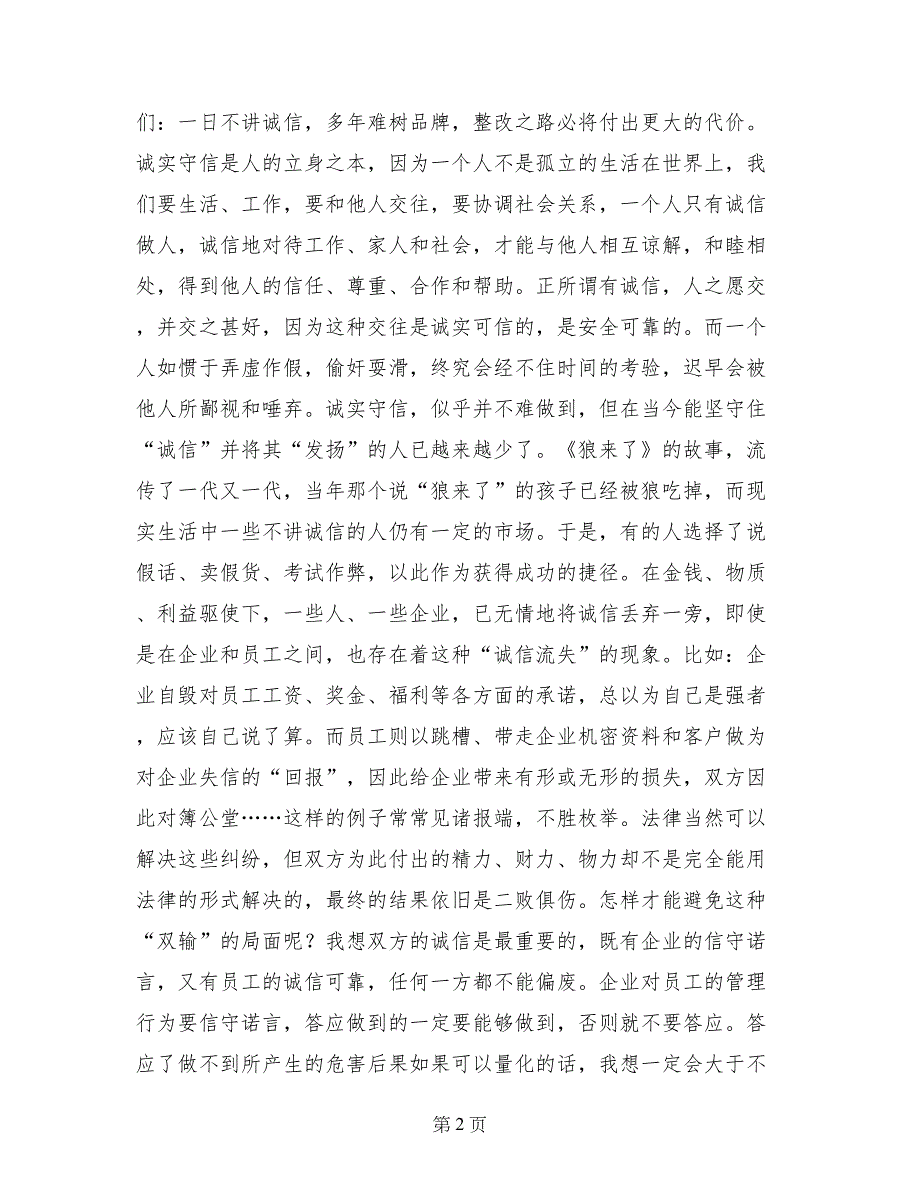 们：一日不讲诚信，多年难树品牌，整改之路必将付出更大的代价。
诚实守信是人的立身之本，因为一个人不是孤立的生活在世界上，我
们要生活、工作，要和他人交往，要协调社会关系，一个人只有诚信
做人，诚信地对待工作、家人和社会，才能与他人相互谅解，和睦相
处，得到他人的信任、尊重、合作和帮助。正所谓有诚信，人之愿交
，并交之甚好，因为这种交往是诚实可信的，是安全可靠的。而一个
人如惯于弄虚作假，偷奸耍滑，终究会经不住时间的考验，迟早会被
他人所鄙视和唾弃。诚实守信，似乎并不难做到，但在当今能坚守住
“诚信”并将其“发扬”的人已越来越少了。《狼来了》的故事，流
传了一代又一代，当年那个说“狼来了”的孩子已经被狼吃掉，而现
实生活中一些不讲诚信的人仍有一定的市场。于是，有的人选择了说
假话、卖假货、考试作弊，以此作为获得成功的捷径。在金钱、物质
、利益驱使下，一些人、一些企业，已无情地将诚信丢弃一旁，即使
是在企业和员工之间，也存在着这种“诚信流失”的现象。比如：企
业自毁对员工工资、奖金、福利等各方面的承诺，总以为自己是强者
，应该自己说了算。而员工则以跳槽、带走企业机密资料和客户做为
对企业失信的“回报”，因此给企业带来有形或无形的损失，双方因
此对簿公堂……这样的例子常常见诸报端，不胜枚举。法律当然可以
解决这些纠纷，但双方为此付出的精力、财力、物力却不是完全能用
法律的形式解决的，最终的结果依旧是二败俱伤。怎样才能避免这种
“双输”的局面呢？我想双方的诚信是最重要的，既有企业的信守诺
言，又有员工的诚信可靠，任何一方都不能偏废。企业对员工的管理
行为要信守诺言，答应做到的一定要能够做到，否则就不要答应。答
应了做不到所产生的危害后果如果可以量化的话，我想一定会大于不
第 2 页